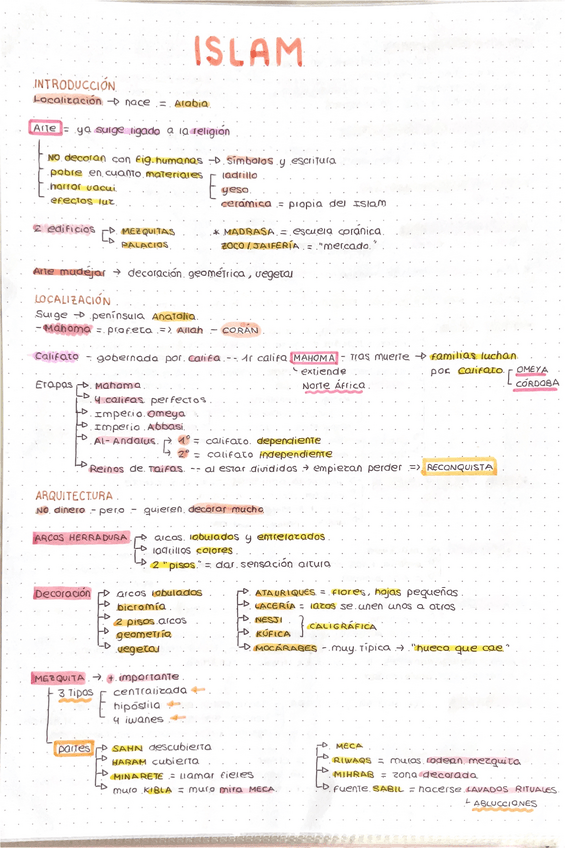 ISLAM
INTRODUCCIÓN
Localización → nace = Arabia
Arte = ya surge ligado a la religión
NO decoran con fig. humanas → símbolos y escritura
pobre en cuanto materiales
ladrillo
yeso
cerámica = propia del Islam
horror vacui
efectos luz
2 edificios
MEZQUITAS
PALACIOS
* MADRASA = escuela coránica
ZOCO / JAIFERÍA = "mercado"
Arte mudéjar → decoración geométrica, vegetal
LOCALIZACIÓN
Surge → península Anatolia
- Mahoma = profeta => Allah - CORÁN
Califato - gobernada por califa -- 1r califa MAHOMA - tras muerte → familias luchan
por Califato
OMEYA
CÓRDOBA
extiende
Norte África
Etapas
Mahoma
4 califas perfectos
Imperio Omeya
Imperio Abbasí
Al-Andalus
1º = califato dependiente
2º = califato independiente
Reinos de Taifas -- al estar divididos → empiezan perder => RECONQUISTA
ARQUITECTURA
NO dinero - pero - quieren decorar mucho
ARCOS HERRADURA
arcos lobulados y entrelazados
ladrillos colores
2 "pisos" = dar sensación altura
Decoración
arcos lobulados
bicromía
2 pisos arcos
geometría
vegetal
ATAURIQUES = flores, hojas pequeñas
LACERÍA = lazos se unen unos a otros
NESJI
KÚFICA
CALIGRÁFICA
MOCÁRABES - muy típica → "hueco que cae"
MEZQUITA → + importante
3 Tipos
centralizada
hipóstila
4 iwanes
partes
SAHN descubierta
HARAM cubierta
MINARETE = llamar fieles
muro KIBLA = muro mira MECA
MECA
RIWAQS = muros rodean mezquita
MIHRAB = zona decorada
fuente SABIL = hacerse LAVADOS RITUALES
ABLUCCIONES